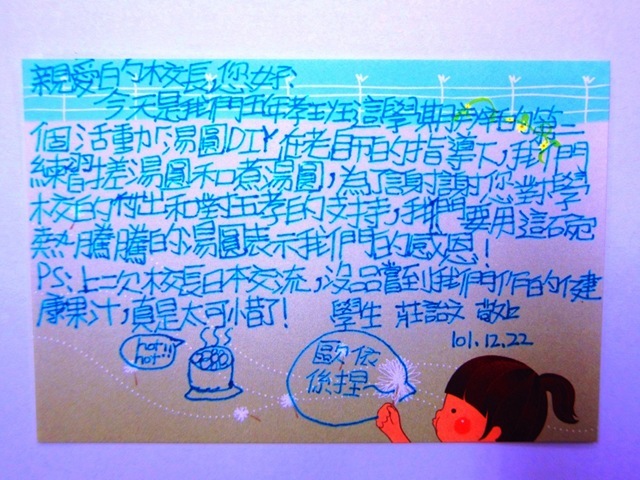 親愛的校長,您好:
今天是我們五年孝班這學期舉辦的第二
個活動「湯圓DIY」在老師的指導下,我們
練習搓湯圓和煮湯圓,為了謝謝您對學
校的付出和對五孝的支持,我們要用這碗
熱騰騰的湯圓表示我們的感恩!
PS:上次校長日本交流,沒品嘗到我們作的健
康果汁,真是太可惜了!學生 莊詒文 敬上
101.12.22
hot!!
hot!!
歐依
係捏~